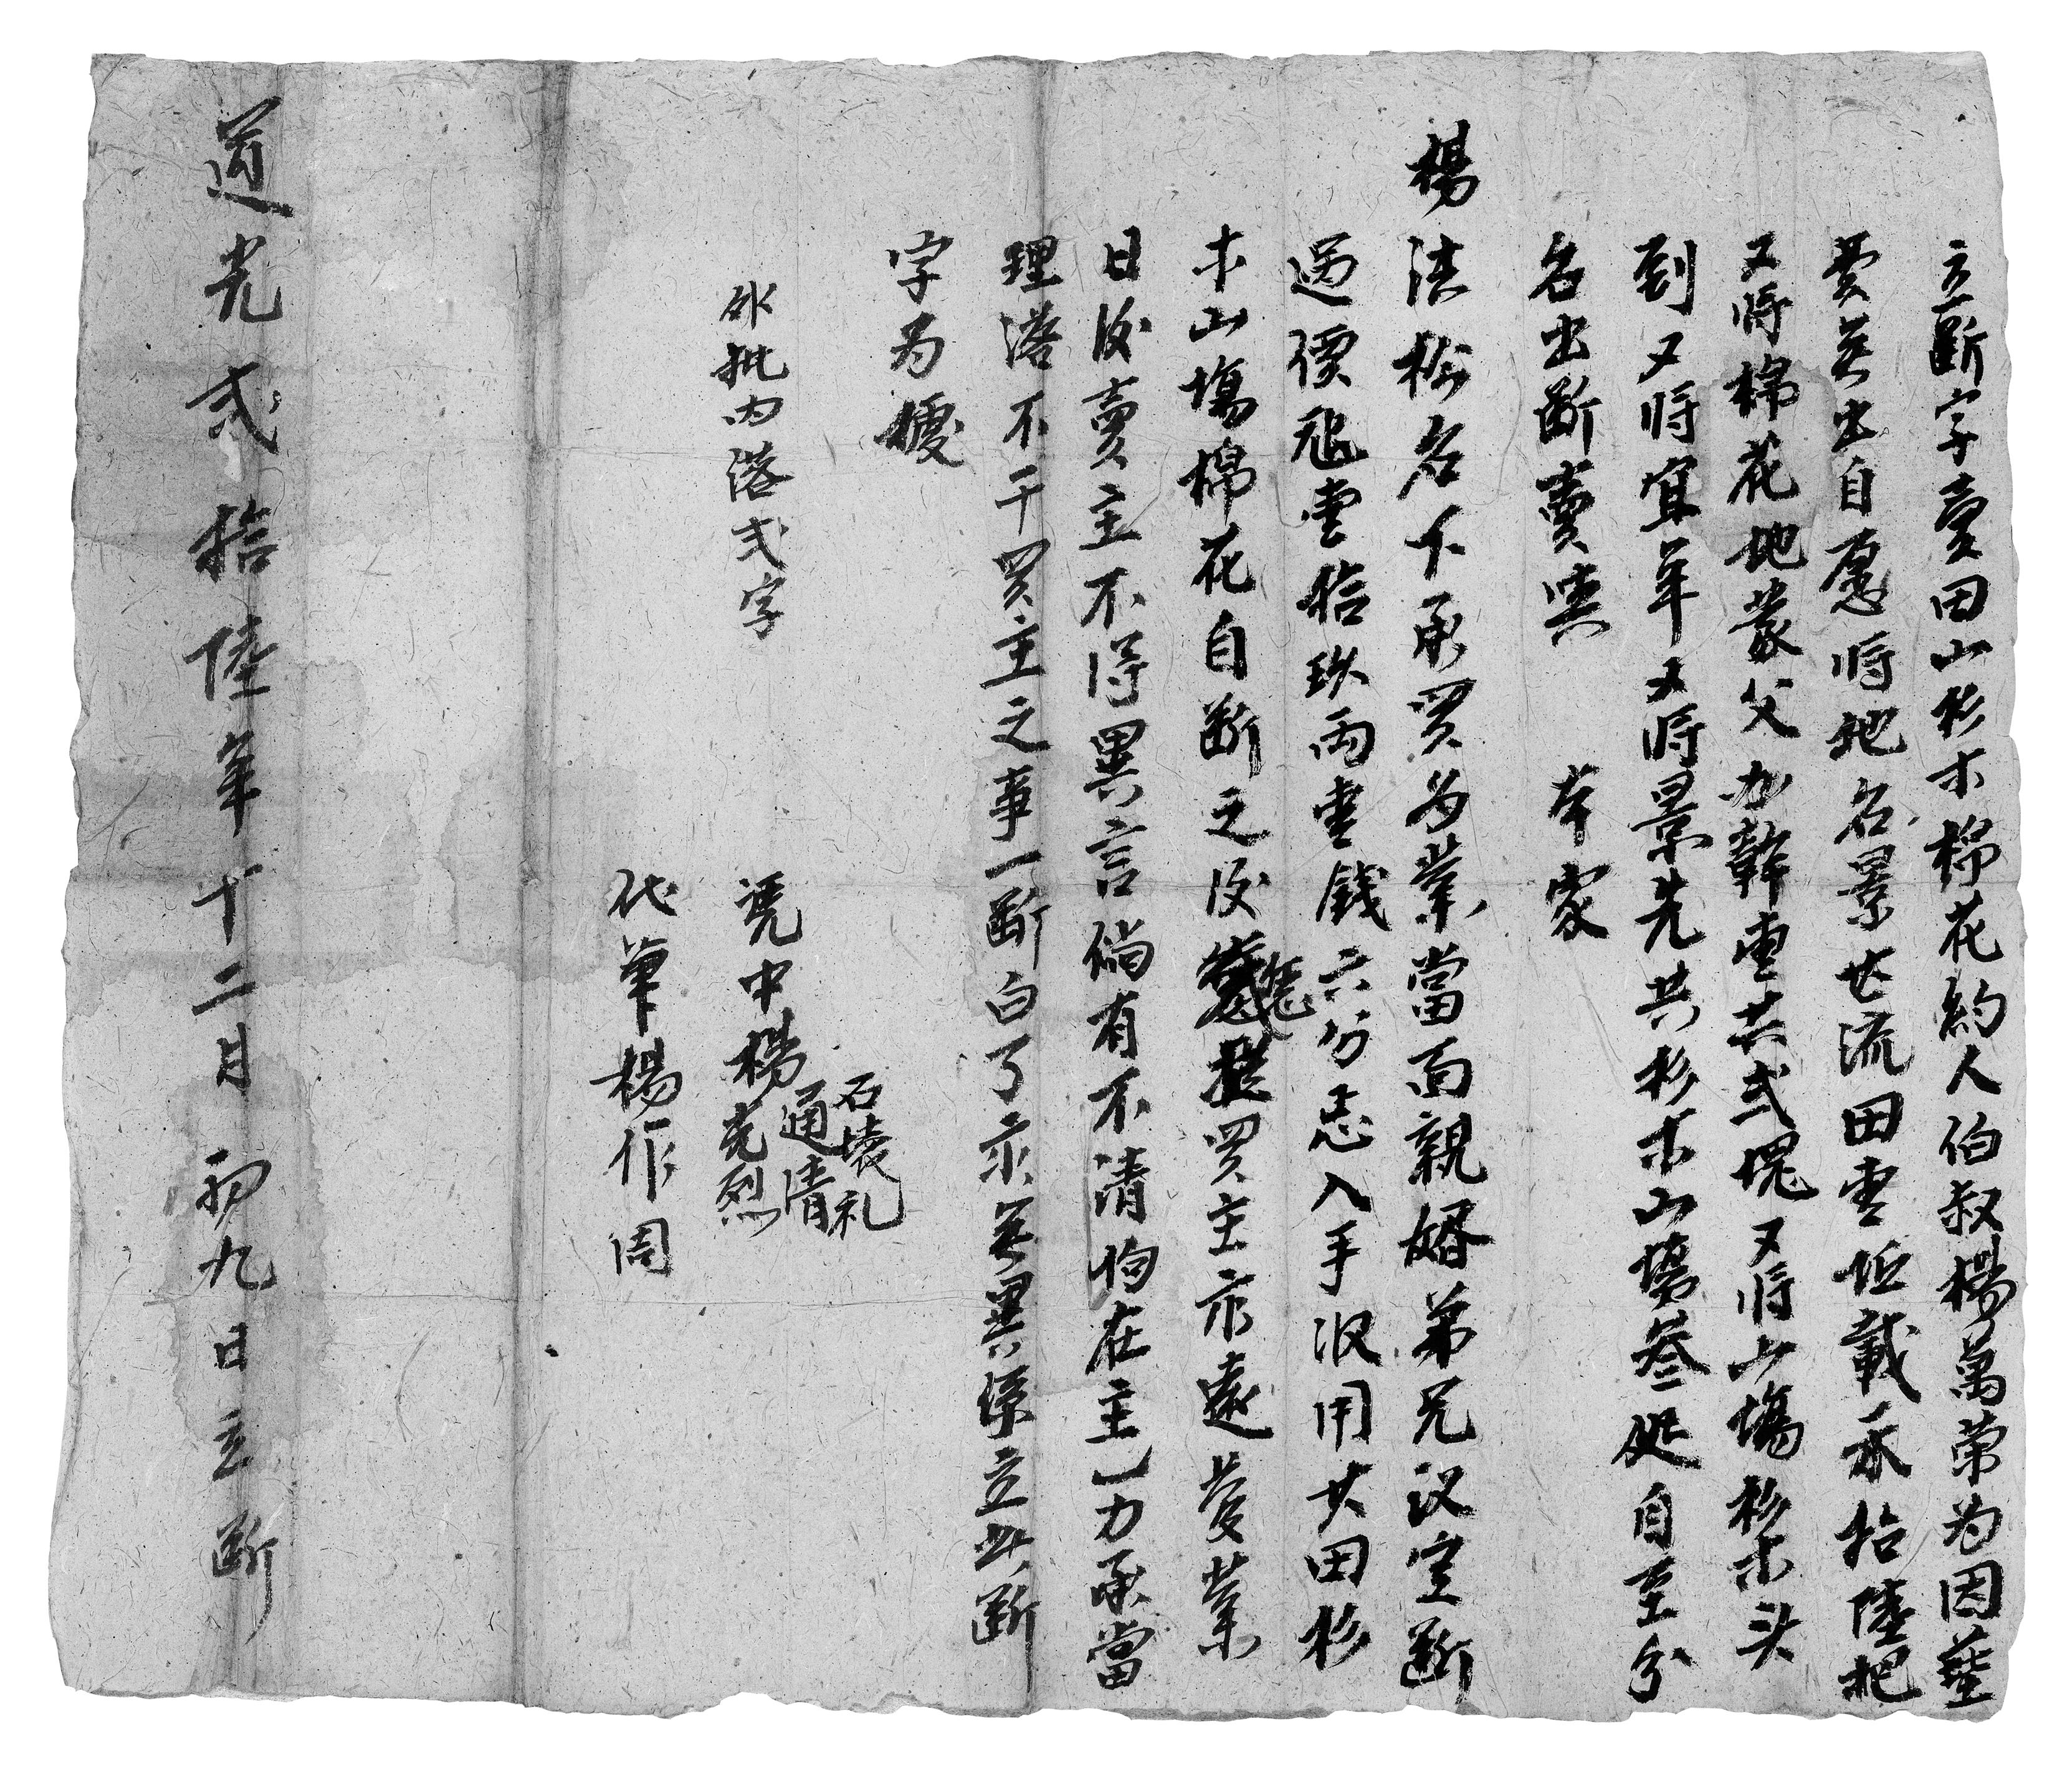 立断字賣田山杉木棉花約人伯叔楊萬荣为因
賣无出自愿将地名景世流田壹坵載禾拾陸把
又将棉花地蒙父加幹壹共弍塊又将山塲杉木头
到又将宜年又将景先共杉木山塲叁处自至分
名出断賣與 本家
楊法松名下承買为業當面親婿弟兄议定断
過價艮壹拾玖両壹錢六分忎入手汉用其田杉
木山塲棉花自断之後凴買主永遠菅業
日後賣主不得異言倘有不清均在主力承當
理落不干買主之事一断白了永无異係立此断
字为據
外批内落弍字
凴中楊 石壊礼 通清 光烈
代筆楊作周
道光弍拾陸年十二月初九日立断